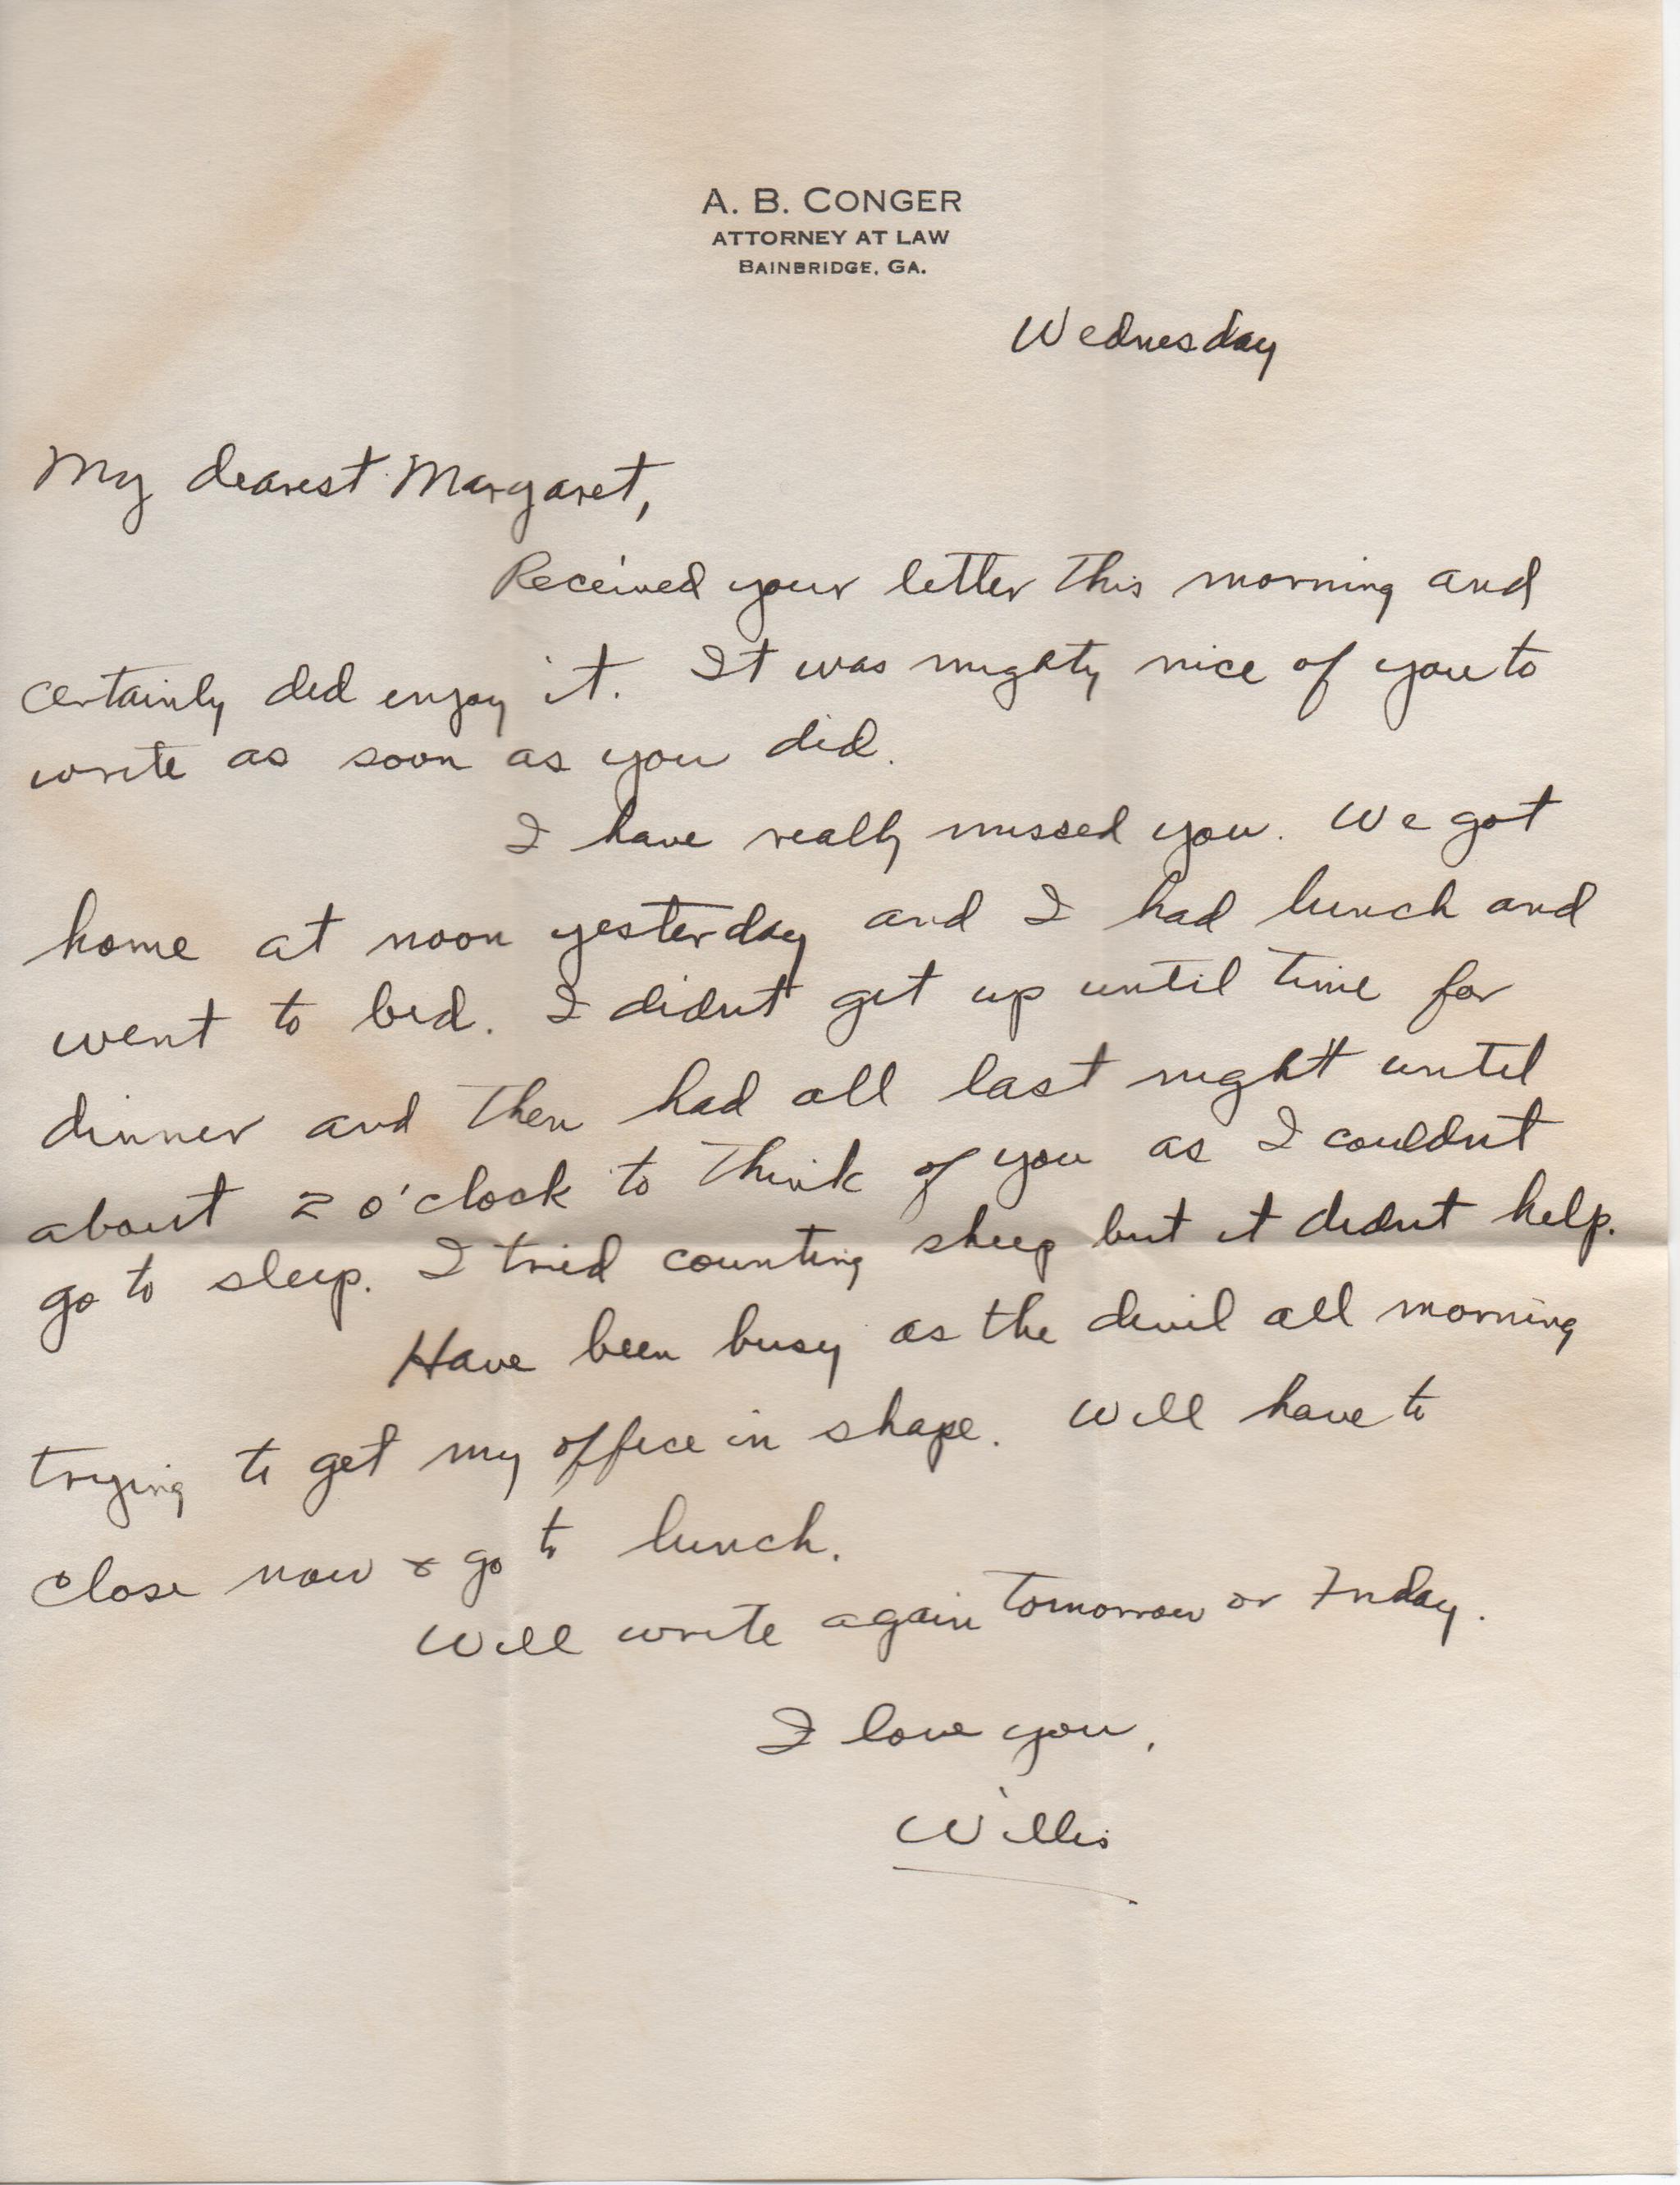 A. B. CONGER
ATTORNEY AT LAW
BAINBRIDGE, GA.
Wednesday
My dearest Margaret,
Received your letter this morning and
certainly did enjoy it. It was mighty nice of you to
write as soon as you did.
I have really missed you. We got
home at noon yesterday and I had lunch and
went to bed. I didnt get up until time for
dinner and then had all last night until
about 2 o'clock to think of you as I couldnt
go to sleep. I tried counting sheep but it didnt help.
Have been busy as the devil all morning
trying to get my office in shape. Will have to
close now & go to lunch.
Will write again tomorrow or Friday.
I love you,
Willis